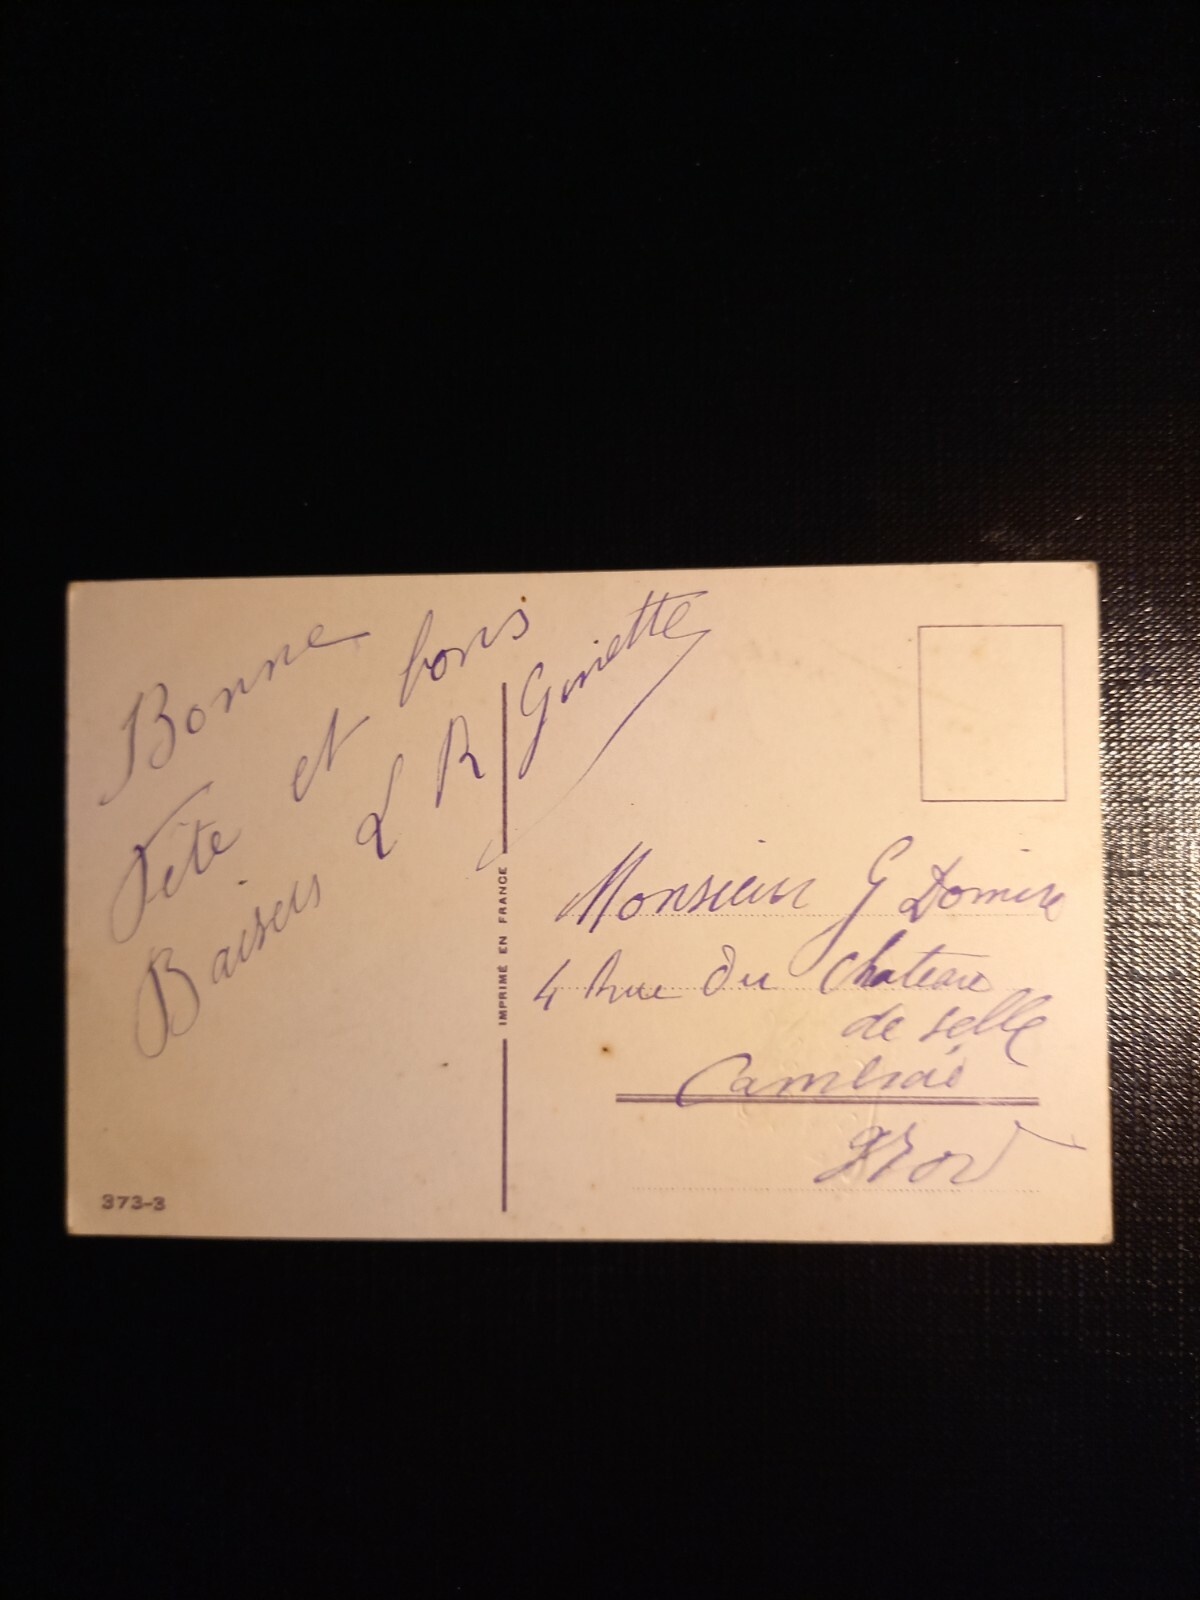 Bonne
Fête et bons
Baisers L R Ginette
IMPRIMÉ EN FRANCE
Monsieur G
4 Rue du Chateau
de selle
Cambrai
Nord
373-3